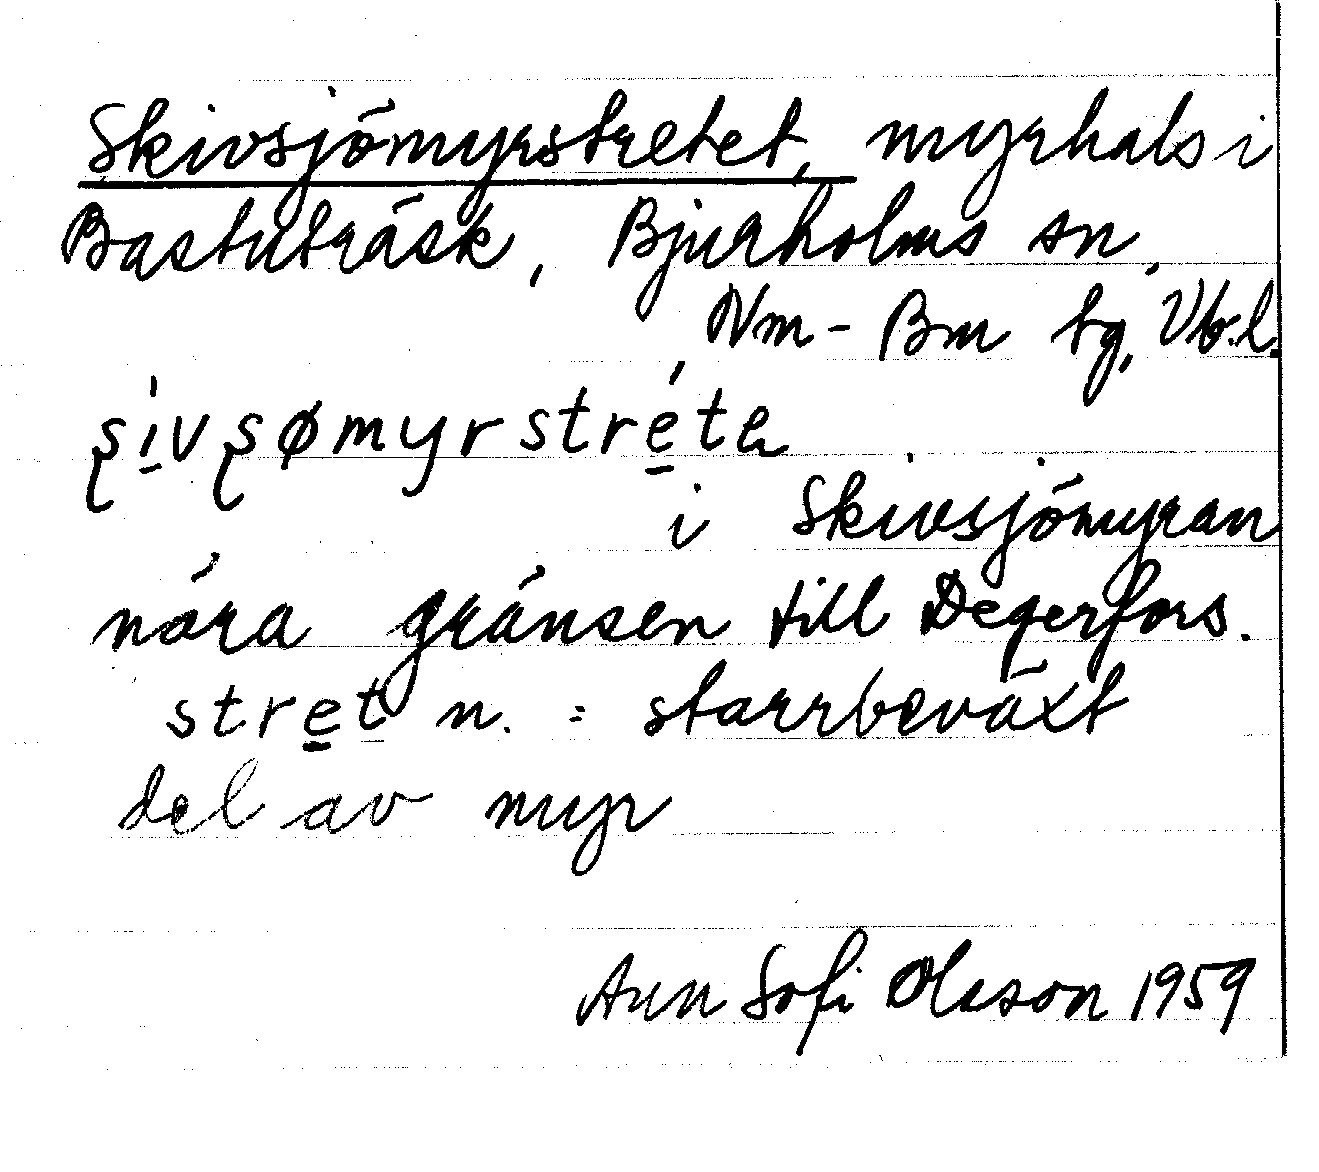 Skivsjömyrstretet, myrhals i
Bastuträsk, Bjurholms sn,
Nm-Bm tg, Vb.l.
ʂi̱vʂømyrstre̱tɐ
i Skivsjömyran
nära gränsen till Degerfors.
stre̱t n. = starrbeväxt
del av myr
Ann Sofi Olsson 1959